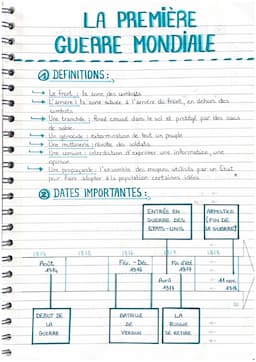 LA PREMIÈRE
GUERRE MONDIALE
① DEFINITIONS :
Le front : la zone des combats
L'arrière : la zone située à l'arrière du front, en dehors des
combats
Une tranchée : fossé creusé dans le sol et protégé par des sacs
de sable
Un génocide : extermination de tout un peuple
Une mutinerie : révolte des soldats
Une censure : interdiction d'exprimer une information, une
opinion
Une propagande : l'ensemble des moyens utilisés par un Etat
pour faire adopter à la population certaines idées
② DATES IMPORTANTES :
ENTRÉE EN
GUERRE DES
ETATS-UNIS
ARMISTICE
(FIN DE
LA GUERRE)
1914 1915 1916 1917 1918
Août
1914
Fév. - Déc.
1916
Avril
1917
11 nov.
1918
DEBUT DE
LA
GUERRE
BATAILLE
DE
VERDUN
LA
RUSSIE
SE RETIRE